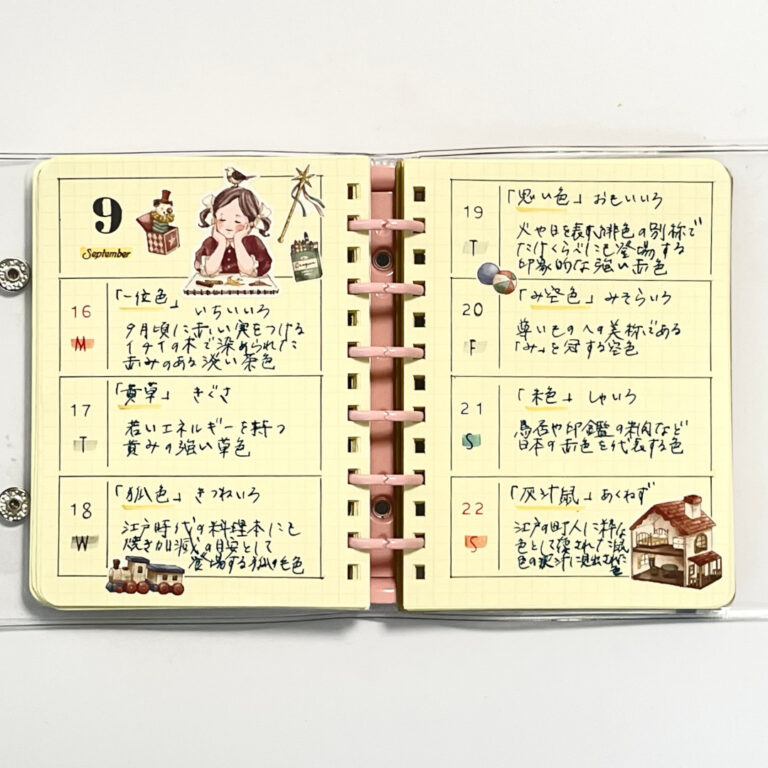 9
September
16
M
「一位色」いちいいろ
9月頃に赤い実をつける
イチイの木で染められた
赤みのある淡い茶色
17
T
「黄草」きぐさ
若いエネルギーを持つ
黄みの強い草色
18
W
「狐色」きつねいろ
江戸時代の料理本にも
焼き加減の目安として
登場する狐の毛色
19
T
「思い色」おもいいろ
火や日を表す緋色の別称で
たけくらべにも登場する
印象的な強い赤色
20
F
「み空色」みそらいろ
尊いものへの美称である
「み」を冠する空色
21
S
「朱色」しゅいろ
鳥居や印鑑の朱肉など
日本の赤色を代表する色
22
S
「灰汁鼠」あくねず
江戸の町人に粋な
色として愛された鼠
色の灰汁に見出された
色